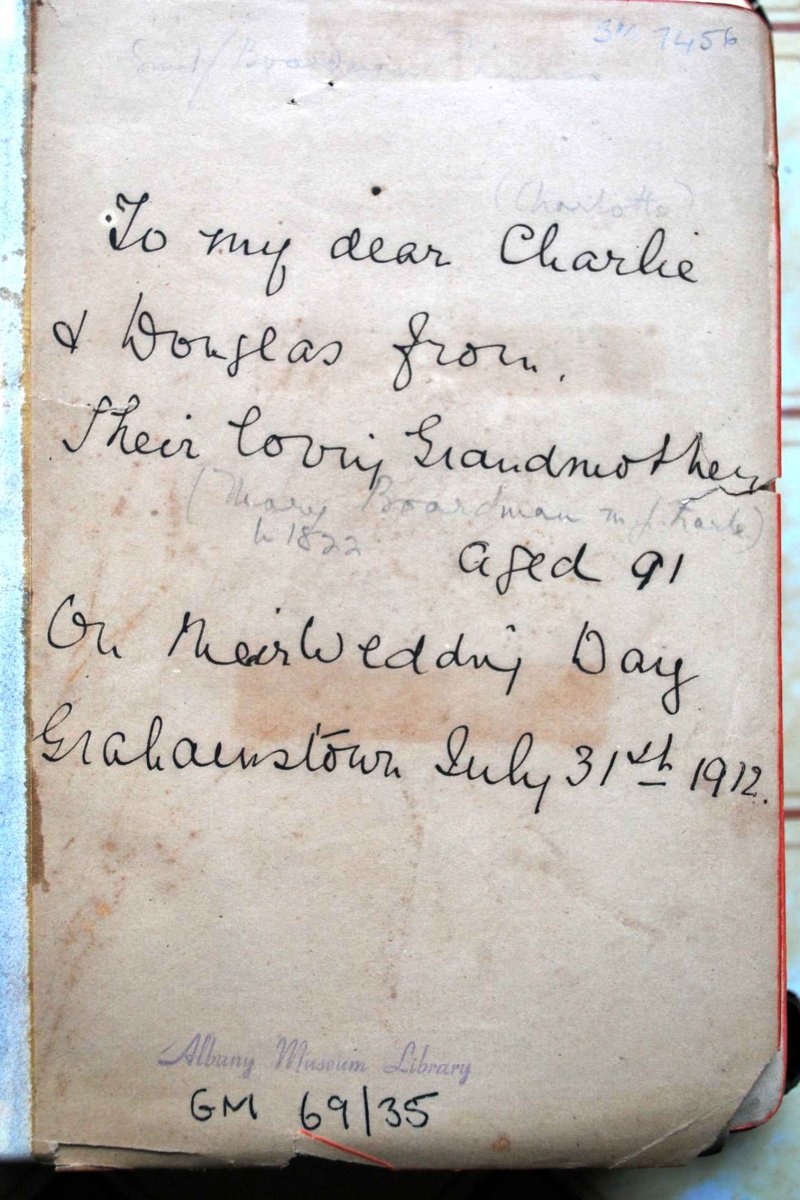 7456
Boardman
(Charlotte)
To my dear Charlie
& Douglas from.
Their loving Grandmother
(Mary Boardman m J.
b 1822
aged 91
On their Wedding Day
Grahamstown July 31st 1912.
Albany Museum Library
GM 69/35